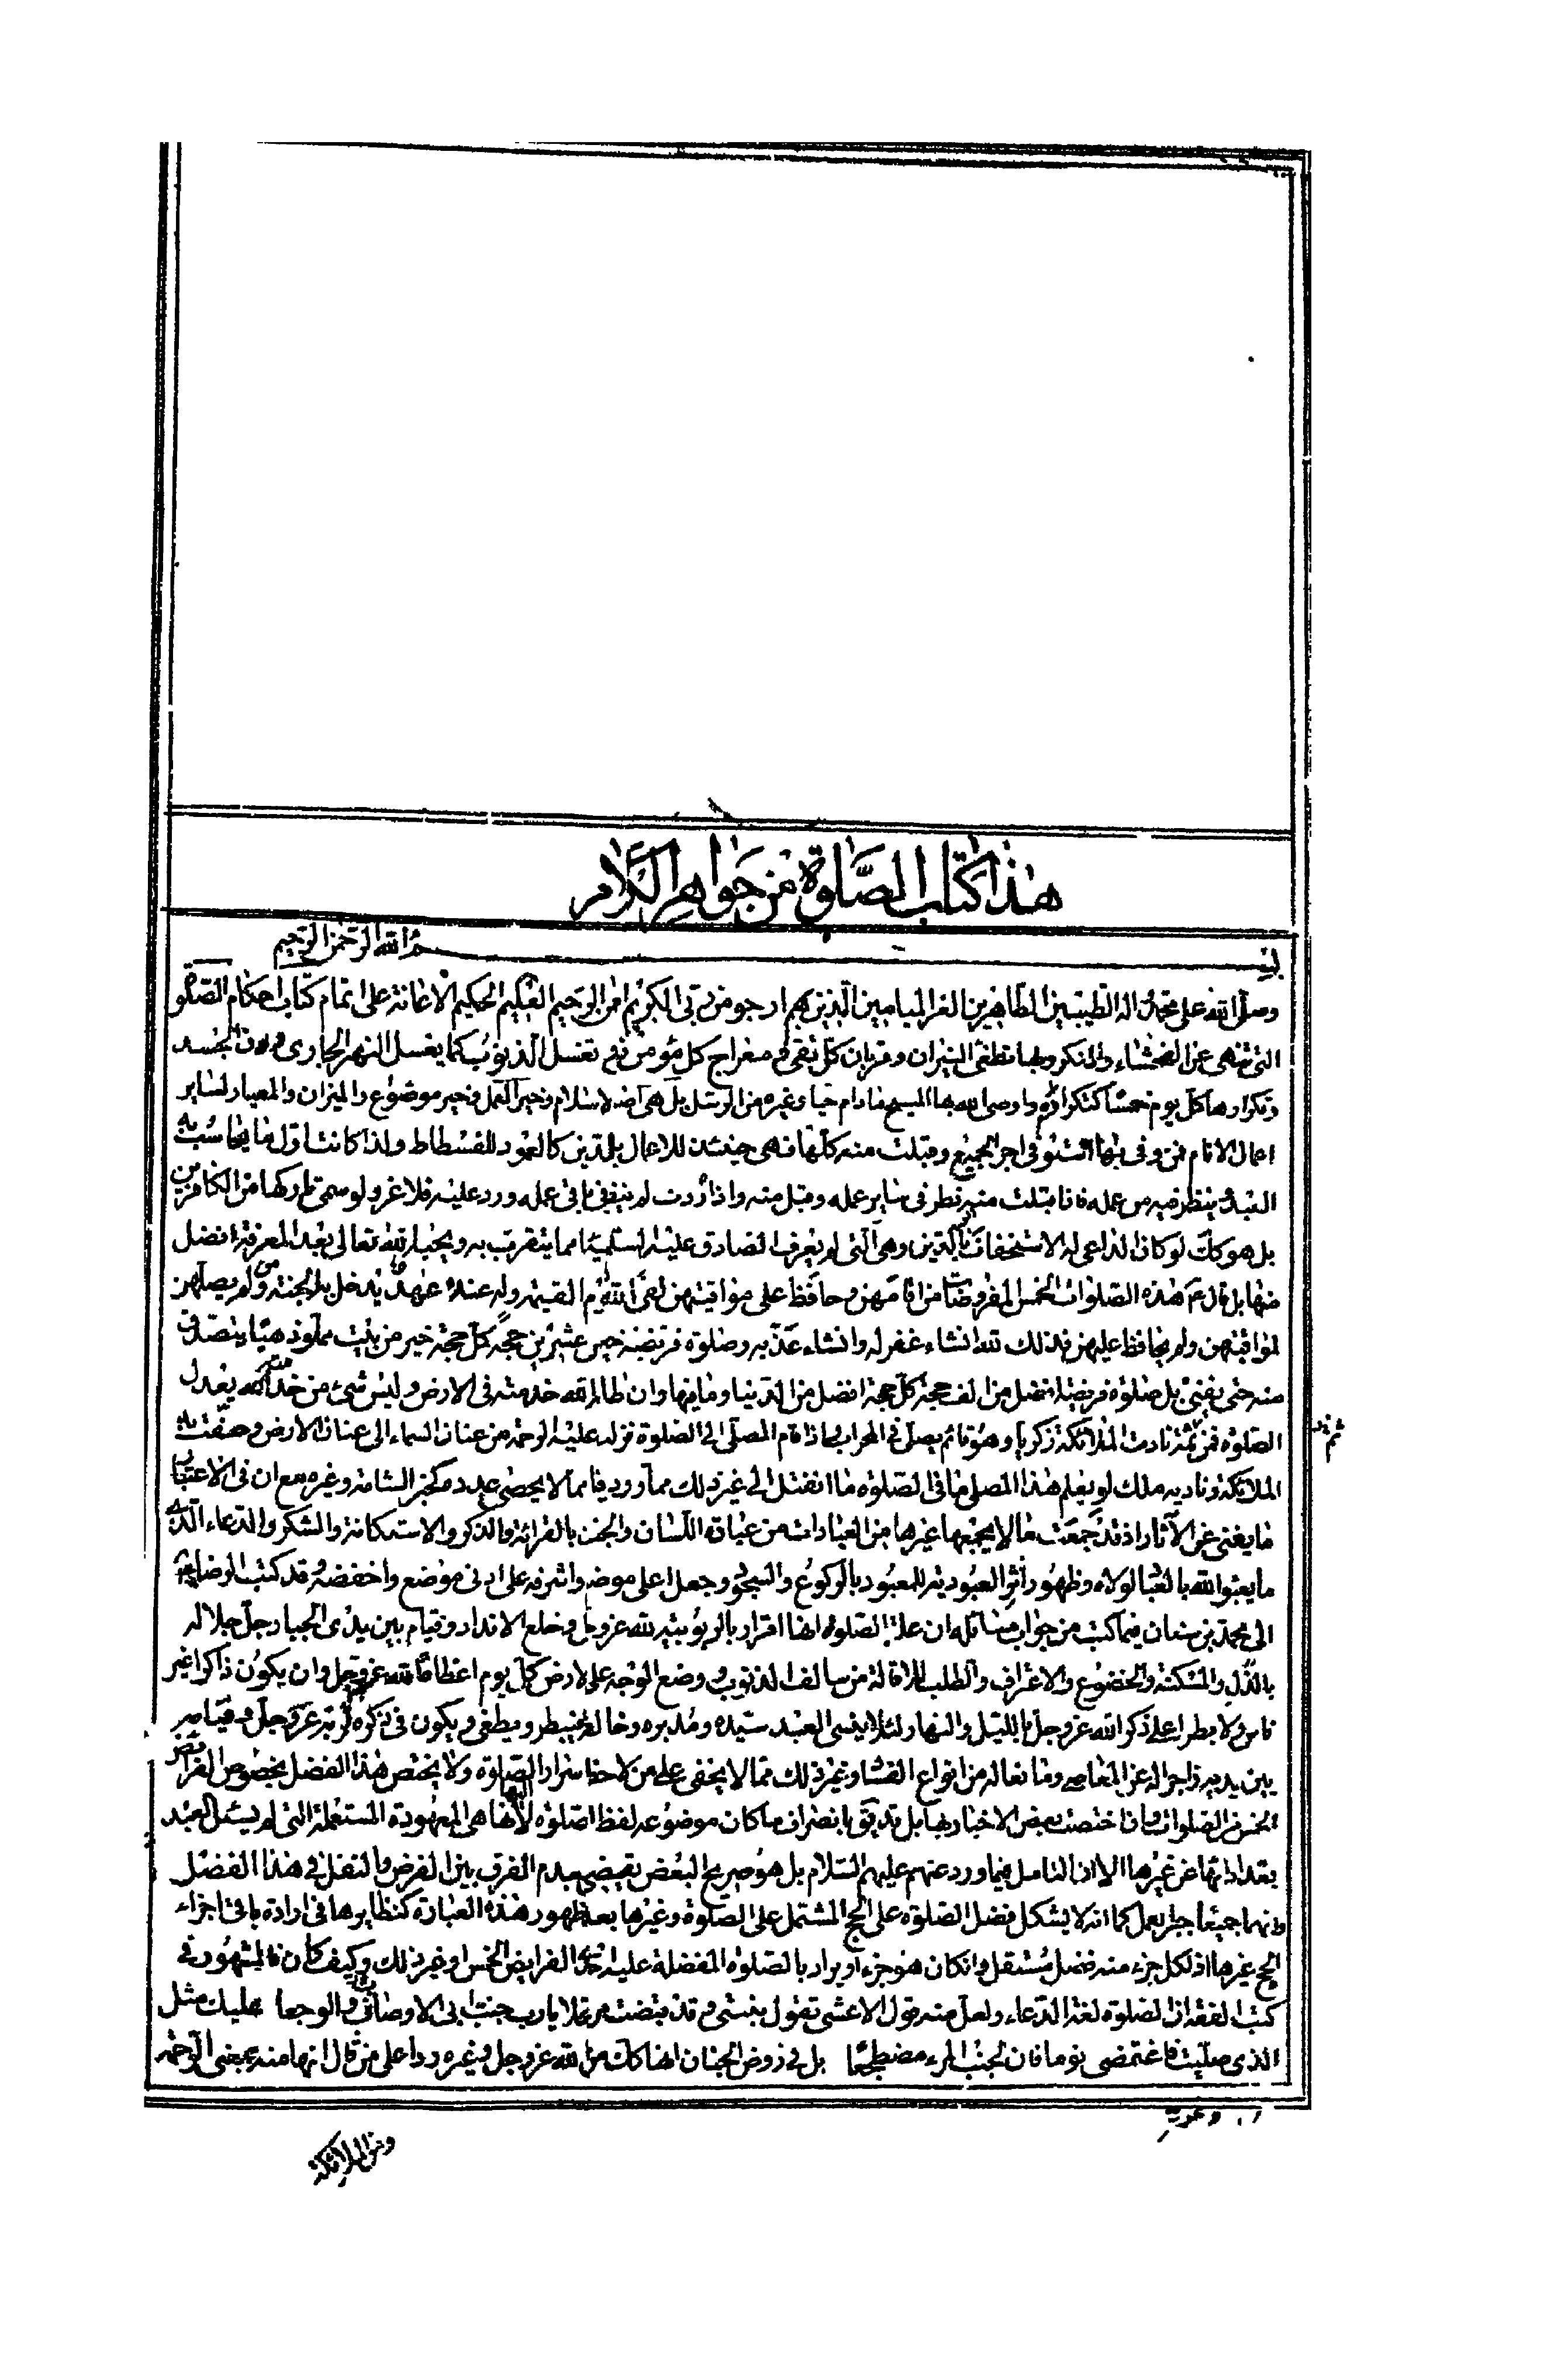 هذا كتاب الصلوة من جواهر الكلام
بسم الله الرحمن الرحيم
وصلى الله على محمد واله الطيبين الطاهرين الغر الميامين الذين بهم ارجو من ربى الكريم المن الرحيم العليم الحكيم الاعانة على اتمام كتاب احكام الصلوة
التى تنهى عن الفحشاء والمنكر وبها تطفى النيران وقربان كل تقى ومعراج كل مؤمن نقى تغسل الذنوب كما يغسل النهر الجارى درن الجسد
وتكرارها كل يوم خمسا كتكراره واوصى الله بها المسيح مادام حيا وغيره من الرسل بل هى اصل الاسلام وخير العمل وخير موضوع والميزان والمعيار لساير
اعمال الانام فمن وفى بها استوفى اجر الجميع وقبلت منه كلها فهى حينئذ للاعمال بل الدين كالعمود للفسطاط ولذا كانت اول ما يحاسب به
العبد وينظر فيه من عمله فان قبلت منه نظر فى ساير عمله وقبل منه واذا ردت لم ينظر فى باقى عمله ورد عليه فلا غرو لو سمى تاركها من الكافرين
بل هو كك لو كان الداعى له الاستخفاف بالدين وهى التى لم يعرف الصادق عليه السلم شيئا مما يتقرب به ويحبه الله تعالى بعد المعرفة افضل
منها بل قال ع هذه الصلوات الخمس المفروضات من اقامهن وحافظ على مواقيتهن لقى الله يوم القيمة وله عنده عهد يدخل به الجنة ومن لم يصلهن
لمواقيتهن ولم يحافظ عليهن فذلك لله انشاء غفر له وانشاء عذبه وصلوة فريضة خير من عشرين حجة كل حجة خير من بيت مملو ذهبا يتصدق
منه حتى يفنى بل صلوة فريضة افضل من الف حجة كل حجة افضل من الدنيا وما فيها وان طاعة الله خدمته فى الارض وليس شئ من خدمته يعدل
الصلوة فمن ثم نادت الملائكة زكريا وهو قائم يصلى فى المحراب واذا قام المصلى الى الصلوة نزلت عليه الرحمة من عنان السماء الى عنان الارض وحفت به
الملائكة وناديه ملك لو يعلم هذا المصلى ما فى الصلوة ما انفتل الى غير ذلك مما ورد فيها مما لا يحصى عدده كخبر الشامة وغيره مع ان فى الاعتبار
ما يغنى عن الآثار اذ قد جمعت ما لا يجمعها غيرها من العبادات من عبادة اللسان والجنان بالقرائة والذكر والاستكانة والشكر والدعاء الذى
ما يعبؤا الله بالعباد لولاه وظهور اثر العبودية للمعبود بالركوع والسجود وجعل اعلى موضع واشرفه على ادنى موضع واخفضه وقد كتب الرضا ع
الى محمد بن سنان فيما كتب من جواب مسائله ان علة الصلوة انها اقرار بالربوبية لله عز وجل وخلع الانداد وقيام بين يدى الجبار جل جلاله
بالذل والمسكنة والخضوع والاعتراف والطلب للاقالة من سالف الذنوب ووضع الوجه على الارض كل يوم اعظاما لله عز وجل وان يكون ذاكرا غير
ناس ولا بطر اعلى ذكر الله عز وجل بالليل والنهار ولئلا ينسى العبد سيده ومدبره وخالقه فيبطر ويطغى ويكون فى ذكره لربه عز وجل وقيامه
بين يديه زاجرا له عن المعاصى ومانعا له من انواع الفساد وغير ذلك مما لا يخفى على من لاحظ اسرار الصلوة ولا يختص هذا الفضل بخصوص الفرايض
الخمس من الصلوات وان اختصت بعض الاخبار بها بل قد يق بانصراف ما كان موضوعه لفظ الصلوة اليها لانها هى المعهودة المستعملة التى لم يسئل العبد
بعد ادائها عن غيرها الا ان التامل فيما ورد عنهم عليهم السلام بل هو صريح البعض يقتضى بعدم الفرق بين الفرض والنفل فى هذا الفضل
وانهما جميعا خير العمل كما انه لا يشكل فضل الصلوة على الحج المشتمل على الصلوة وغيرها بعد ظهور هذه العبارة كنظايرها فى ارادة باقى اجزاء
الحج غيرها اذ لكل جزء منه فضل مستقل وان كان هو جزء او يراد بالصلوة المفضلة عليه خصوص الفرايض الخمس او غير ذلك وكيف كان فالمشهور فى
كتب الفقه ان الصلوة لغة الدعاء ولعل منه قول الاعشى تقول بنتى وقد قربت مرتحلا يارب جنب ابى الاوصاب والوجعا عليك مثل
الذى صليت فاغتمضى نوما فان لجنب المرء مضطجعا بل فى روض الجنان انها كك من الله عز وجل وغيره ردا على من قال انها منه بمعنى الرحمة
ومن الملائكة